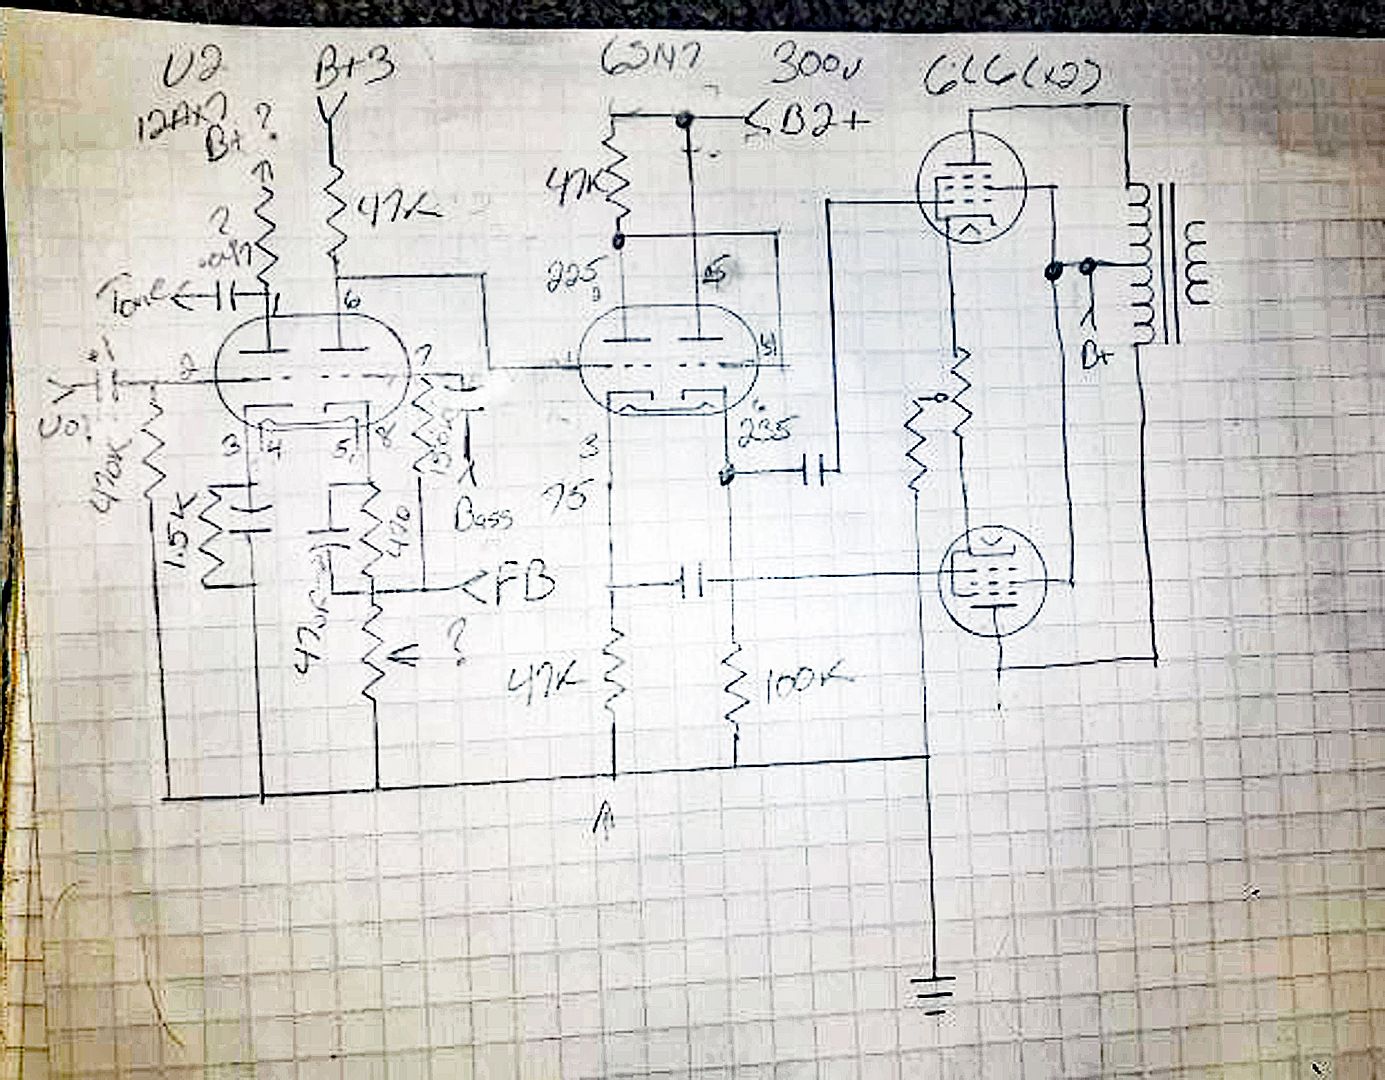 U2 B+3 6SN7 300v 6L6(x2)
12AX7
B+?
B2+
47K
47K
?
.047
225
Tone
1
6
7
1
B+
2
.1
Vol
6
235
3
4
5
8
3
470K
75
1.5K
470
Bass
FB
?
47K
100K
A